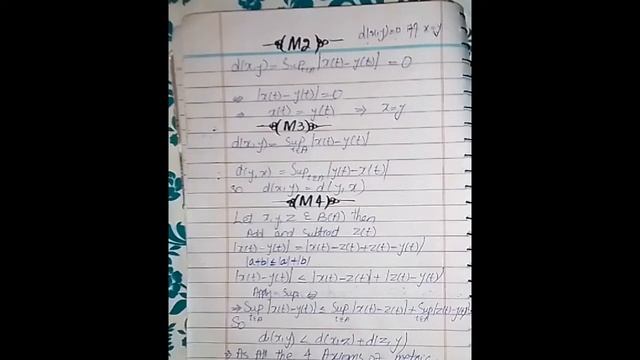 d(x,y)=0 iff x=y
(M2)
d(x,y) = Sup t∈A |x(t)-y(t)| = 0
⇒ |x(t)-y(t)|=0
⇒ x(t) = y(t) ⇒ x=y
(M3)
d(x,y) = Sup t∈A |x(t)-y(t)|
d(y,x) = Sup t∈A |y(t)-x(t)|
So d(x,y) = d(y,x)
(M4)
Let x,y,z ∈ B(A) then
Add and subtract z(t)
|x(t)-y(t)| = |x(t)-z(t)+z(t)-y(t)|
|a+b| ≤ |a|+|b|
|x(t)-y(t)| ≤ |x(t)-z(t)| + |z(t)-y(t)|
Apply Sup
⇒ Sup t∈A |x(t)-y(t)| ≤ Sup t∈A |x(t)-z(t)| + Sup t∈A |z(t)-y(t)|
So
d(x,y) ≤ d(x,z) + d(z,y)
⇒ As All the 4 Axioms of metric